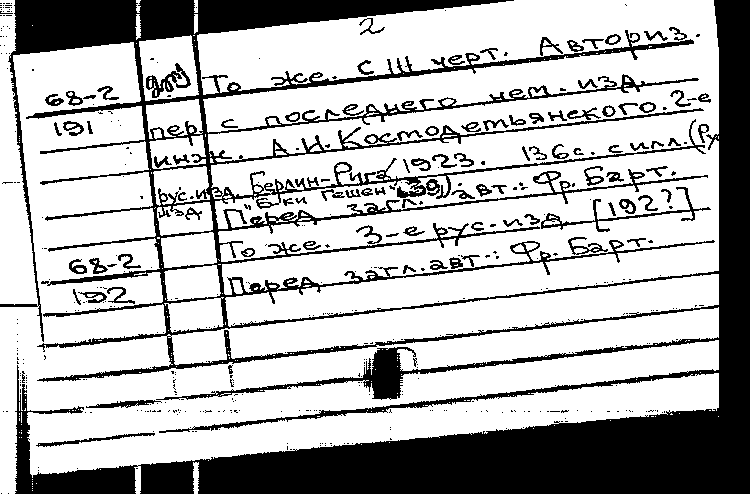 2
68-2 То же. С III черт. Авториз.
191 пер. с последнего нем. изд.
инж. А.И. Костодетьянского. 2-е
рус. изд. Берлин-Рига, 1923. 136 с. с илл. (Ру
изд. "Б-ки Гешен" 39).
Перед загл. авт.: Фр. Барт.
68-2 То же. 3-е рус. изд. [192?]
192 Перед загл. авт.: Фр. Барт.